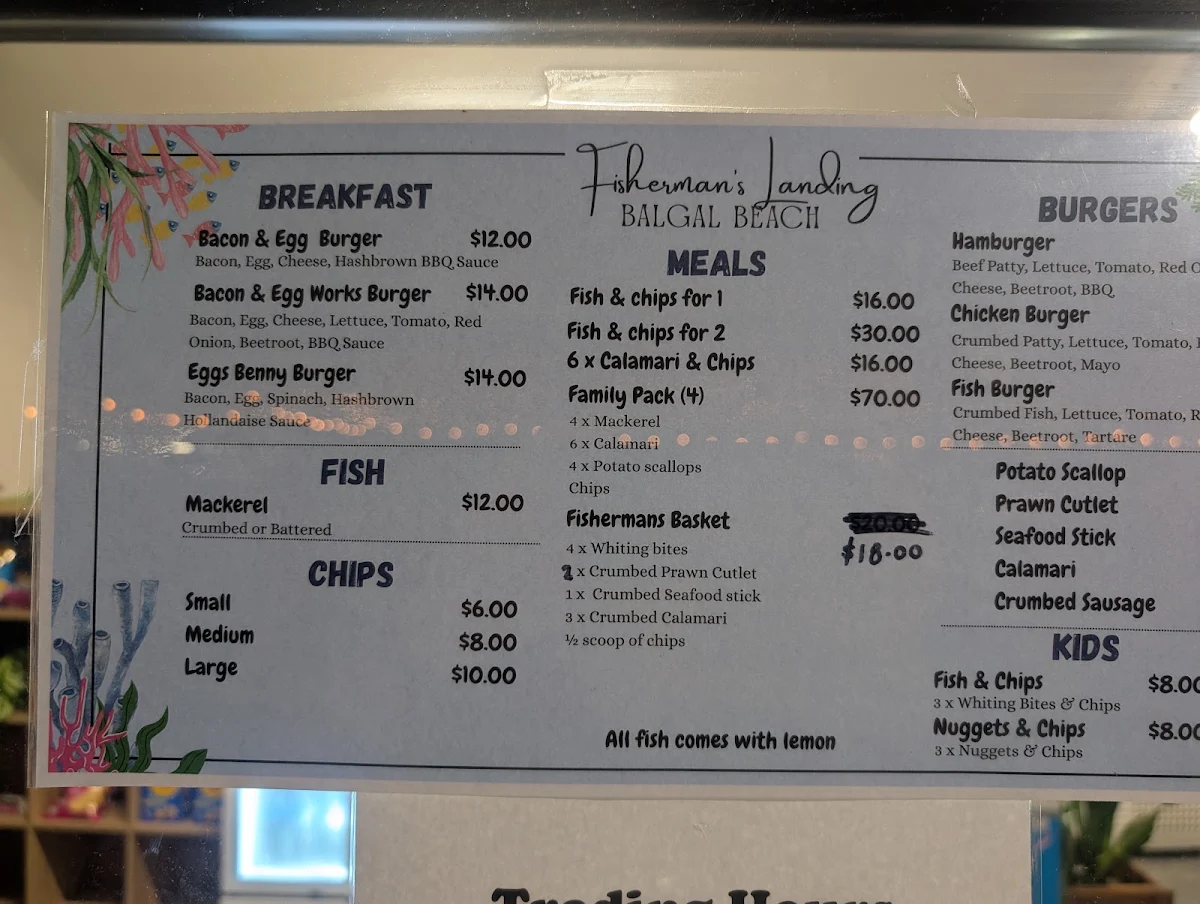 Fisherman's Landing
BALGAL BEACH
BREAKFAST
Bacon & Egg Burger $12.00
Bacon, Egg, Cheese, Hashbrown BBQ Sauce
Bacon & Egg Works Burger $14.00
Bacon, Egg, Cheese, Lettuce, Tomato, Red
Onion, Beetroot, BBQ Sauce
Eggs Benny Burger $14.00
Bacon, Egg, Spinach, Hashbrown
Hollandaise Sauce
FISH
Mackerel $12.00
Crumbed or Battered
CHIPS
Small $6.00
Medium $8.00
Large $10.00
MEALS
Fish & chips for 1 $16.00
Fish & chips for 2 $30.00
6 x Calamari & Chips $16.00
Family Pack (4) $70.00
4 x Mackerel
6 x Calamari
4 x Potato scallops
Chips
Fishermans Basket $20.00
$18.00
4 x Whiting bites
2 x Crumbed Prawn Cutlet
1 x Crumbed Seafood stick
3 x Crumbed Calamari
½ scoop of chips
All fish comes with lemon
BURGERS
Hamburger
Beef Patty, Lettuce, Tomato, Red
Cheese, Beetroot, BBQ
Chicken Burger
Crumbed Patty, Lettuce, Tomato,
Cheese, Beetroot, Mayo
Fish Burger
Crumbed Fish, Lettuce, Tomato,
Cheese, Beetroot, Tartare
Potato Scallop
Prawn Cutlet
Seafood Stick
Calamari
Crumbed Sausage
KIDS
Fish & Chips $8.00
3 x Whiting Bites & Chips
Nuggets & Chips $8.00
3 x Nuggets & Chips
Trading Hours